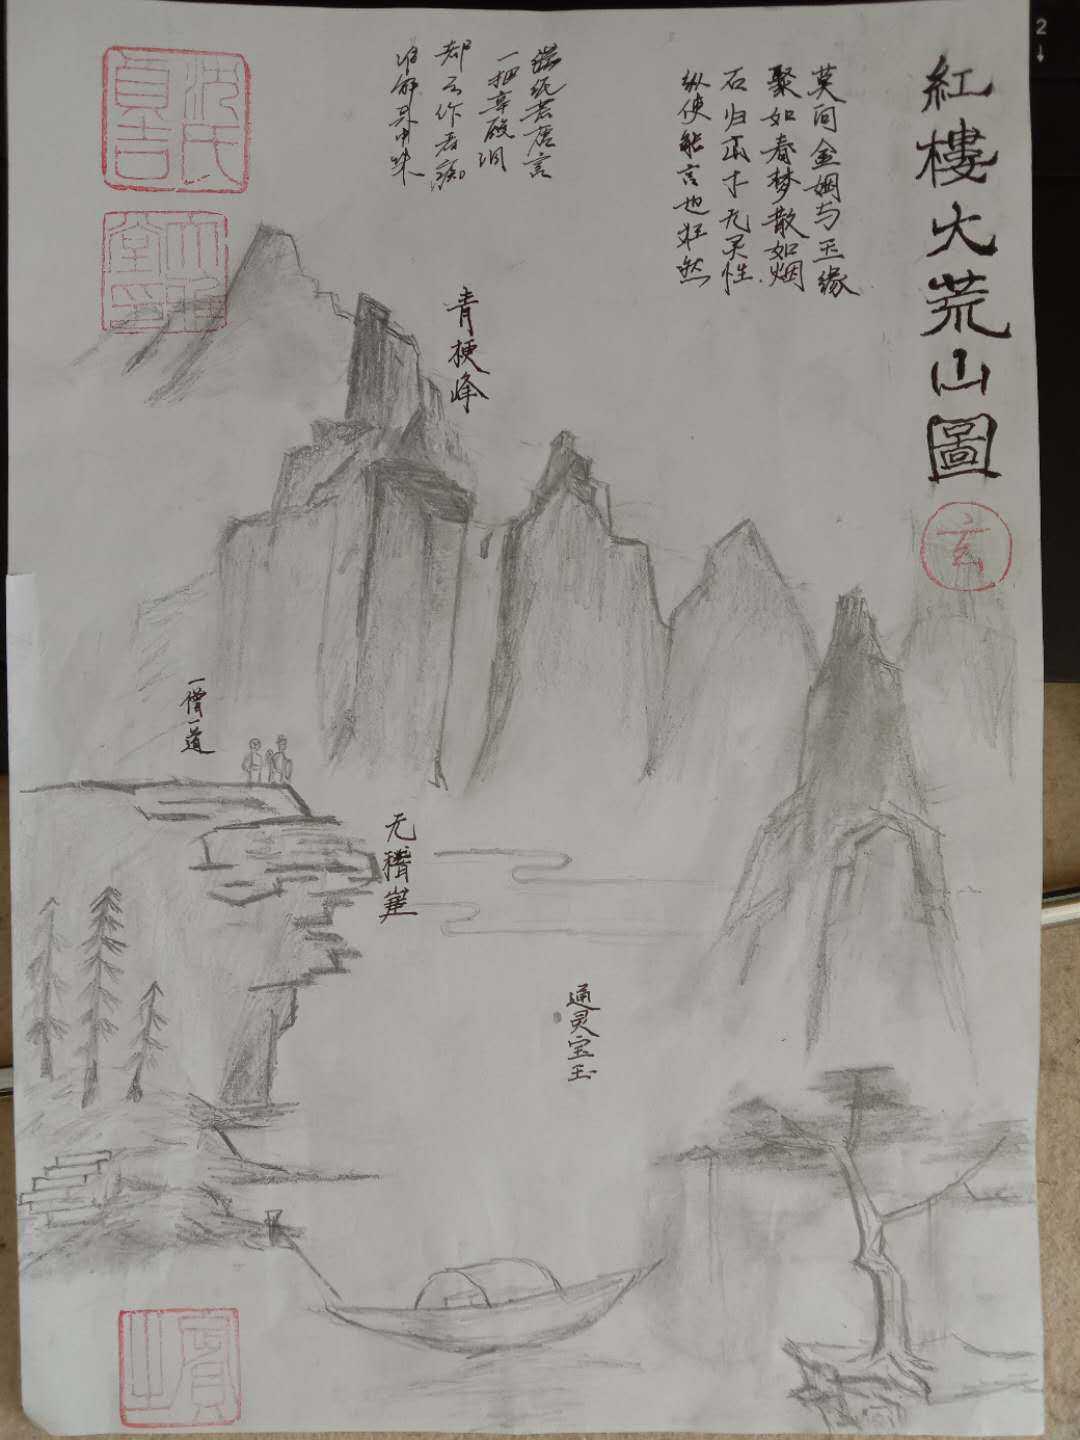 紅樓大荒山圖
玄
莫问金姻与玉缘
聚如春梦散如烟
石归山下无灵性
纵使能言也枉然
满纸荒唐言
一把辛酸泪
都云作者痴
谁解其中味
沈氏
貞吉
青梗峰
一僧一道
无稽崖
通灵宝玉
2